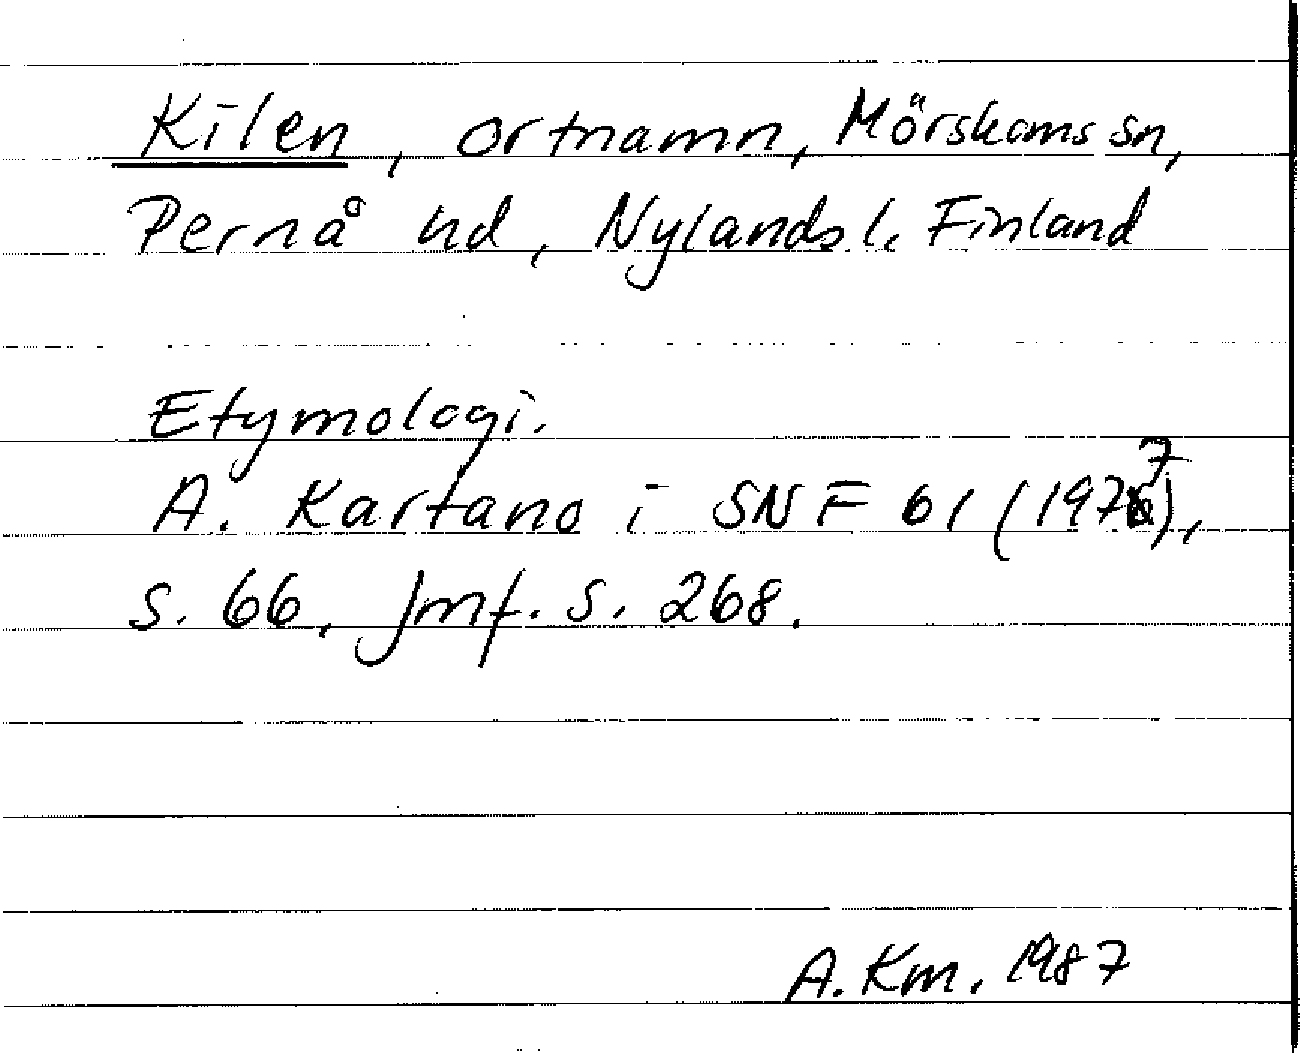 Kilen, ortnamn, Mörskoms sn,
Pernå hd, Nylands l. Finland
Etymologi.
A. Kartano i SNF 61 (1977),
s. 66, jmf. s. 268.
A. Km. 1987